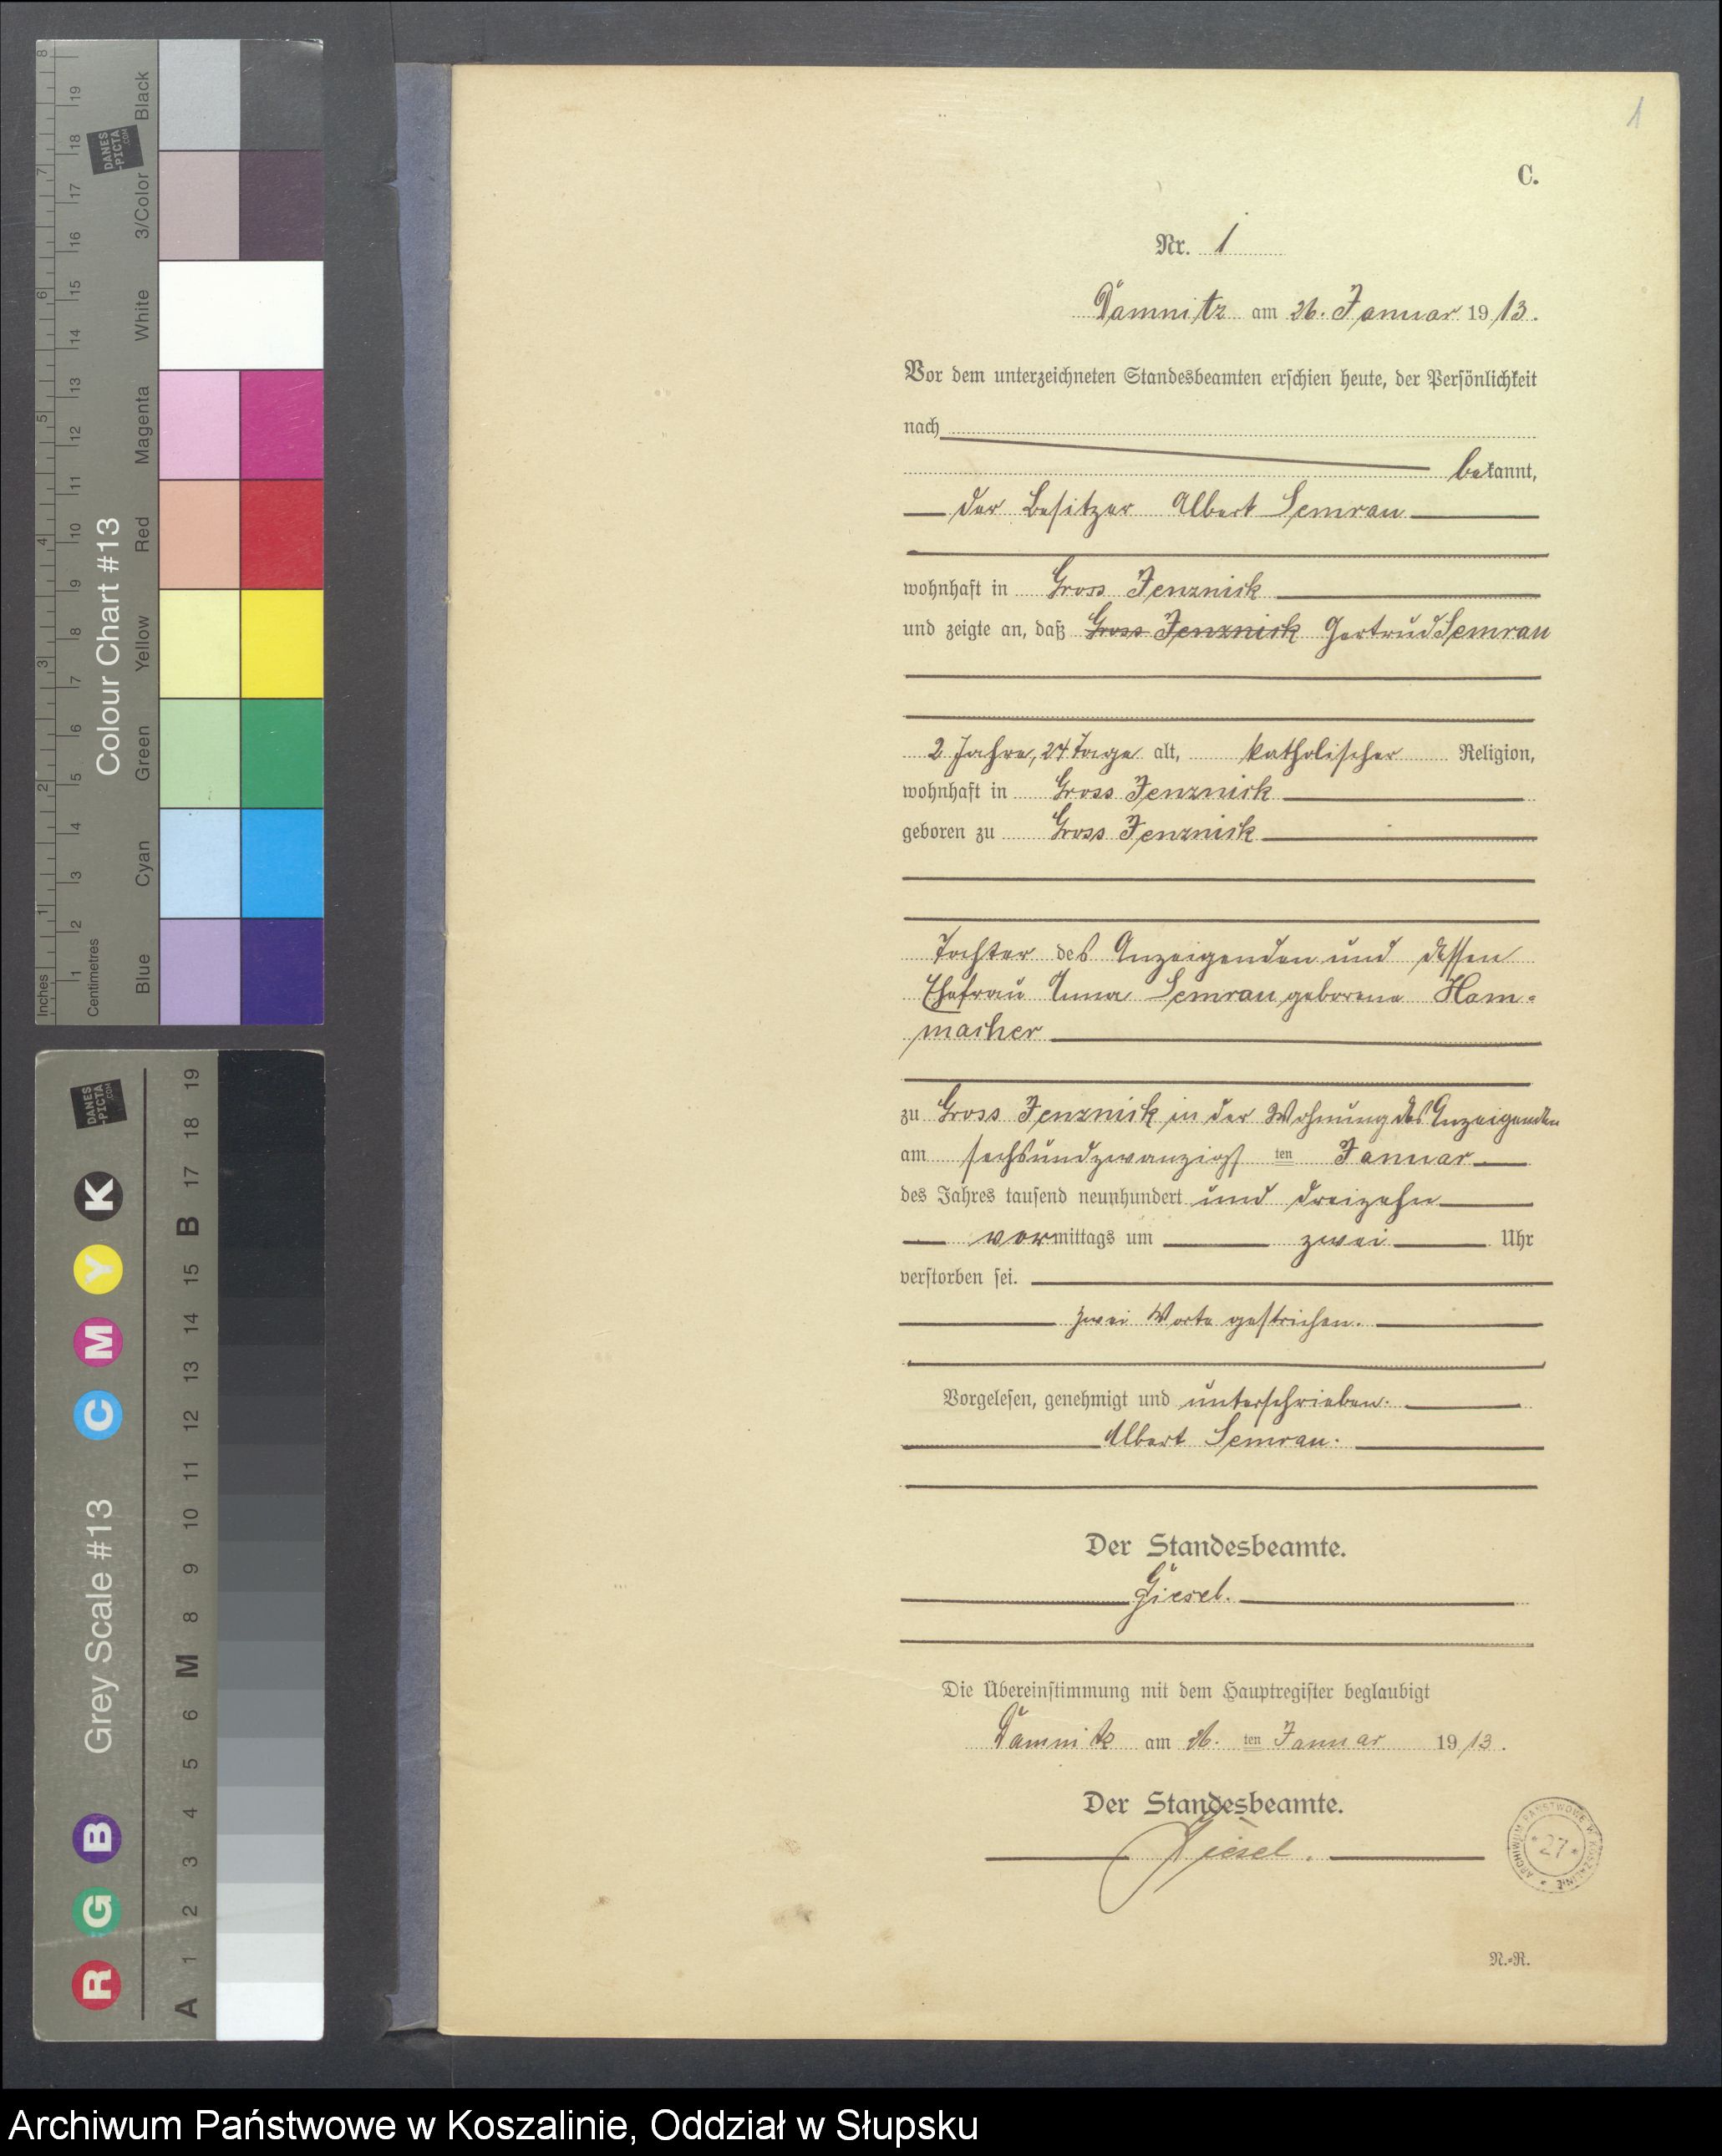 1
C.
Nr. 1
Damnitz am 26. Januar 1913.
Vor dem unterzeichneten Standesbeamten erschien heute, der Persönlichkeit
nach
bekannt,
der Besitzer Albert Semrau
wohnhaft in Gross Jenznick
und zeigte an, daß Gross Jenznick Gertrud Semrau
2 Jahre, 24 Tage alt, katholischer Religion,
wohnhaft in Gross Jenznick
geboren zu Gross Jenznick
Tochter des Anzeigenden und dessen
Ehefrau Anna Semrau geborene Ham-
macher
zu Gross Jenznick in der Wohnung des Anzeigenden
am sechsundzwanzigsten Januar
des Jahres tausend neunhundert und dreizehn
vormittags um zwei Uhr
verstorben sei.
Zwei Worte gestrichen.
Vorgelesen, genehmigt und unterschrieben.
Albert Semrau.
Der Standesbeamte.
Giesel.
Die Übereinstimmung mit dem Hauptregister beglaubigt
Damnitz am 26. ten Januar 1913.
Der Standesbeamte.
Giesel.
ARCHIWUM PAŃSTWOWE W KOSZALINIE
*27*
N.-R.
Inches 1 2 3 4 5 6 7 8
Centimetres 1 2 3 4 5 6 7 8 9 10 11 12 13 14 15 16 17 18 19
Colour Chart #13
Blue Cyan Green Yellow Red Magenta White 3/Color Black
DANES-PICTA.COM
Grey Scale #13
R G B C M Y K
A 1 2 3 4 5 6 M 8 9 10 11 12 13 14 15 B 17 18 19
DANES-PICTA.COM
Archiwum Państwowe w Koszalinie, Oddział w Słupsku